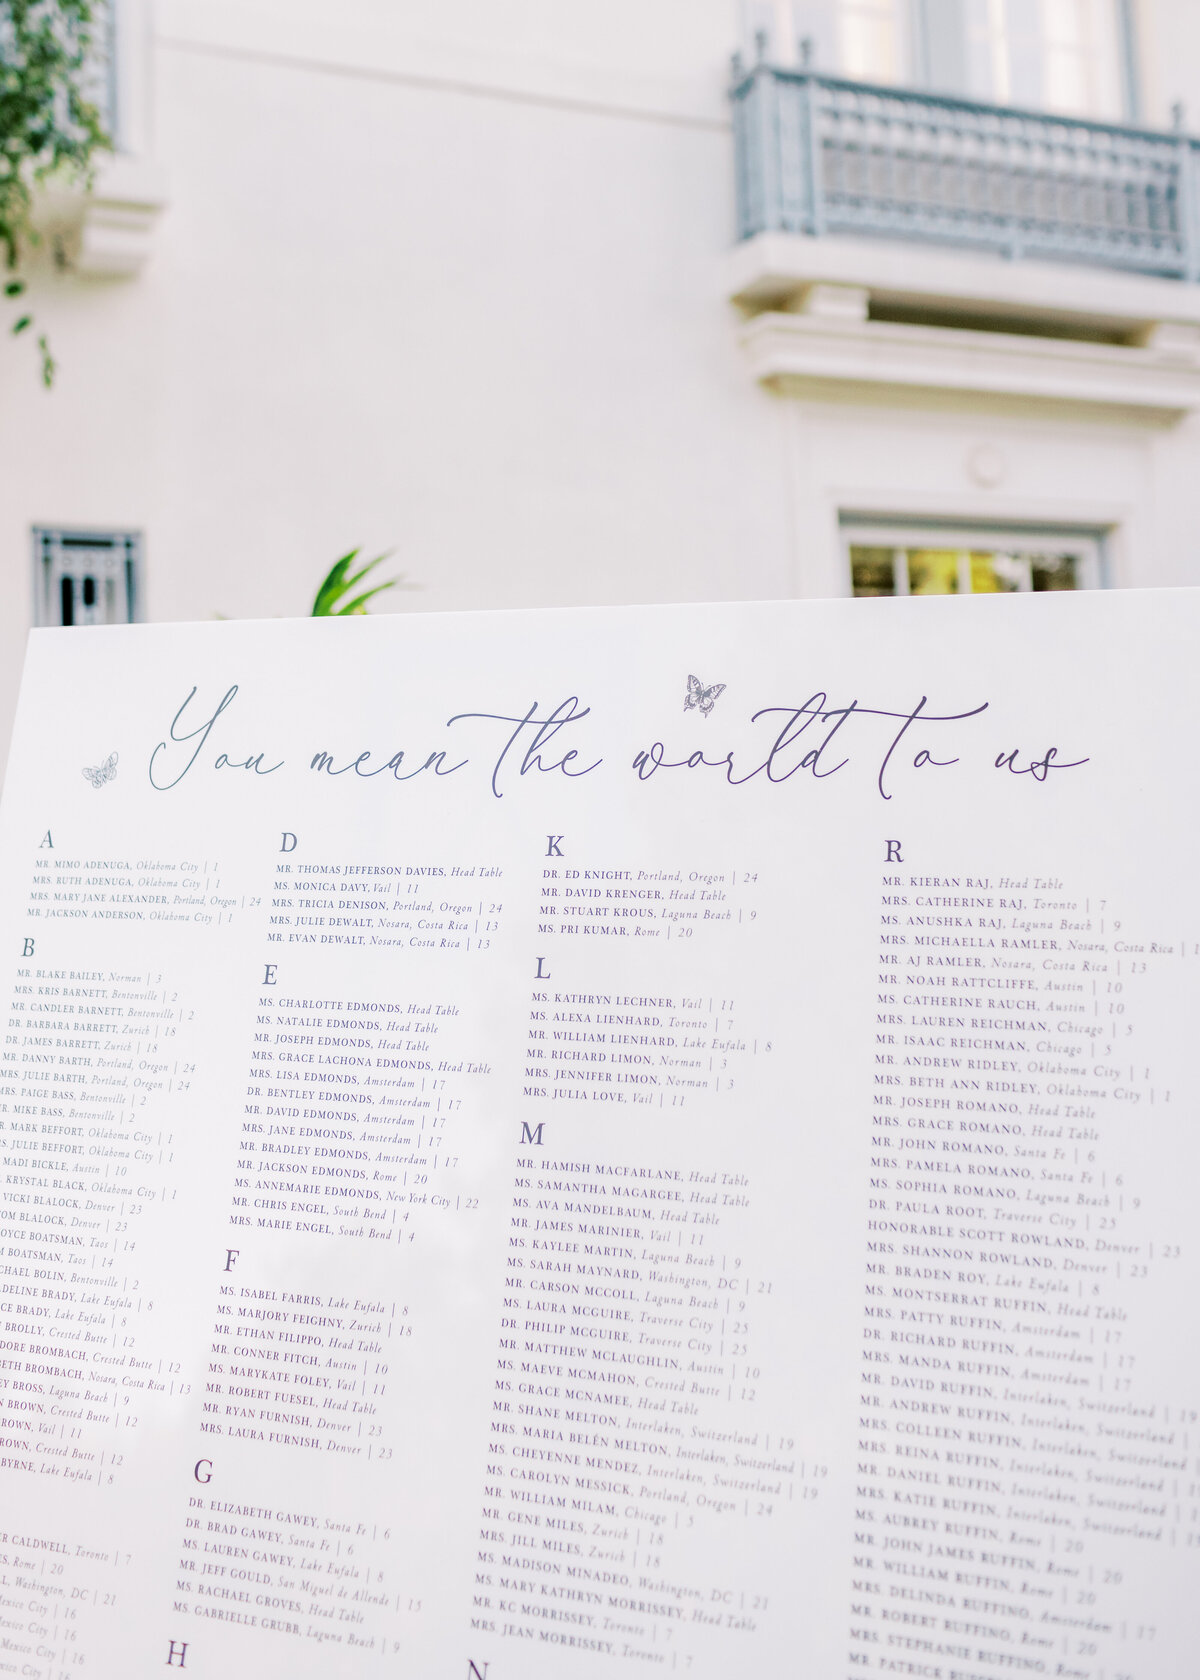 You mean the world to us
A
MR. MIMO ADENUGA, Oklahoma City | 1
MRS. RUTH ADENUGA, Oklahoma City | 1
MRS. MARY JANE ALEXANDER, Portland, Oregon | 24
MR. JACKSON ANDERSON, Oklahoma City | 1
B
MR. BLAKE BAILEY, Norman | 3
MRS. KRIS BARNETT, Bentonville | 2
MR. CANDLER BARNETT, Bentonville | 2
DR. BARBARA BARRETT, Zurich | 18
DR. JAMES BARRETT, Zurich | 18
MR. DANNY BARTH, Portland, Oregon | 24
MRS. JULIE BARTH, Portland, Oregon | 24
PAIGE BASS, Bentonville | 2
MIKE BASS, Bentonville | 2
MARK BEFFORT, Oklahoma City | 1
JULIE BEFFORT, Oklahoma City | 1
MADI BICKLE, Austin | 10
KRYSTAL BLACK, Oklahoma City | 1
VICKI BLALOCK, Denver | 23
BLALOCK, Denver | 23
BOATSMAN, Taos | 14
BOATSMAN, Taos | 14
BOLIN, Bentonville | 2
BRADY, Lake Eufala | 8
BRADY, Lake Eufala | 8
BROLLY, Crested Butte | 12
BROMBACH, Crested Butte | 12
BROMBACH, Nosara, Costa Rica | 13
BROSS, Laguna Beach | 9
BROWN, Crested Butte | 12
Vail | 11
Crested Butte | 12
BYRNE, Lake Eufala | 8
CALDWELL, Toronto | 7
Rome | 20
Washington, DC | 21
Mexico City | 16
Mexico City | 16
Mexico City | 16
City | 16
D
MR. THOMAS JEFFERSON DAVIES, Head Table
MS. MONICA DAVY, Vail | 11
MRS. TRICIA DENISON, Portland, Oregon | 24
MRS. JULIE DEWALT, Nosara, Costa Rica | 13
MR. EVAN DEWALT, Nosara, Costa Rica | 13
E
MS. CHARLOTTE EDMONDS, Head Table
MS. NATALIE EDMONDS, Head Table
MR. JOSEPH EDMONDS, Head Table
MRS. GRACE LACHONA EDMONDS, Head Table
MRS. LISA EDMONDS, Amsterdam | 17
DR. BENTLEY EDMONDS, Amsterdam | 17
MR. DAVID EDMONDS, Amsterdam | 17
MRS. JANE EDMONDS, Amsterdam | 17
MR. BRADLEY EDMONDS, Amsterdam | 17
MR. JACKSON EDMONDS, Rome | 20
MS. ANNEMARIE EDMONDS, New York City | 22
MR. CHRIS ENGEL, South Bend | 4
MRS. MARIE ENGEL, South Bend | 4
F
MS. ISABEL FARRIS, Lake Eufala | 8
MS. MARJORY FEIGHNY, Zurich | 18
MR. ETHAN FILIPPO, Head Table
MR. CONNER FITCH, Austin | 10
MS. MARYKATE FOLEY, Vail | 11
MR. ROBERT FUESEL, Head Table
MR. RYAN FURNISH, Denver | 23
MRS. LAURA FURNISH, Denver | 23
G
DR. ELIZABETH GAWEY, Santa Fe | 6
DR. BRAD GAWEY, Santa Fe | 6
MS. LAUREN GAWEY, Lake Eufala | 8
MR. JEFF GOULD, San Miguel de Allende | 15
MS. RACHAEL GROVES, Head Table
MS. GABRIELLE GRUBB, Laguna Beach | 9
H
K
DR. ED KNIGHT, Portland, Oregon | 24
MR. DAVID KRENGER, Head Table
MR. STUART KROUS, Laguna Beach | 9
MS. PRI KUMAR, Rome | 20
L
MS. KATHRYN LECHNER, Vail | 11
MS. ALEXA LIENHARD, Toronto | 7
MR. WILLIAM LIENHARD, Lake Eufala | 8
MR. RICHARD LIMON, Norman | 3
MRS. JENNIFER LIMON, Norman | 3
MRS. JULIA LOVE, Vail | 11
M
MR. HAMISH MACFARLANE, Head Table
MS. SAMANTHA MAGARGEE, Head Table
MS. AVA MANDELBAUM, Head Table
MR. JAMES MARINIER, Vail | 11
MS. KAYLEE MARTIN, Laguna Beach | 9
MS. SARAH MAYNARD, Washington, DC | 21
MR. CARSON MCCOLL, Laguna Beach | 9
MS. LAURA MCGUIRE, Traverse City | 25
DR. PHILIP MCGUIRE, Traverse City | 25
MR. MATTHEW MCLAUGHLIN, Austin | 10
MS. MAEVE MCMAHON, Crested Butte | 12
MS. GRACE MCNAMEE, Head Table
MR. SHANE MELTON, Interlaken, Switzerland | 19
MRS. MARIA BELÉN MELTON, Interlaken, Switzerland | 19
MS. CHEYENNE MENDEZ, Interlaken, Switzerland | 19
MS. CAROLYN MESSICK, Portland, Oregon | 24
MR. WILLIAM MILAM, Chicago | 5
MR. GENE MILES, Zurich | 18
MRS. JILL MILES, Zurich | 18
MS. MADISON MINADEO, Washington, DC | 21
MS. MARY KATHRYN MORRISSEY, Head Table
MR. KC MORRISSEY, Toronto | 7
MRS. JEAN MORRISSEY, Toronto | 7
N
R
MR. KIERAN RAJ, Head Table
MRS. CATHERINE RAJ, Toronto | 7
MS. ANUSHKA RAJ, Laguna Beach | 9
MRS. MICHAELLA RAMLER, Nosara, Costa Rica |
MR. AJ RAMLER, Nosara, Costa Rica | 13
MR. NOAH RATTCLIFFE, Austin | 10
MS. CATHERINE RAUCH, Austin | 10
MRS. LAUREN REICHMAN, Chicago | 5
MR. ISAAC REICHMAN, Chicago | 5
MR. ANDREW RIDLEY, Oklahoma City | 1
MRS. BETH ANN RIDLEY, Oklahoma City | 1
MR. JOSEPH ROMANO, Head Table
MRS. GRACE ROMANO, Head Table
MR. JOHN ROMANO, Santa Fe | 6
MRS. PAMELA ROMANO, Santa Fe | 6
MS. SOPHIA ROMANO, Laguna Beach | 9
DR. PAULA ROOT, Traverse City | 25
HONORABLE SCOTT ROWLAND, Denver | 23
MRS. SHANNON ROWLAND, Denver | 23
MR. BRADEN ROY, Lake Eufala | 8
MS. MONTSERRAT RUFFIN, Head Table
MRS. PATTY RUFFIN, Amsterdam | 17
DR. RICHARD RUFFIN, Amsterdam | 17
MRS. MANDA RUFFIN, Amsterdam | 17
MR. DAVID RUFFIN, Interlaken, Switzerland | 19
MR. ANDREW RUFFIN, Interlaken, Switzerland |
MRS. COLLEEN RUFFIN, Interlaken, Switzerland
MRS. REINA RUFFIN, Interlaken, Switzerland |
MR. DANIEL RUFFIN, Interlaken, Switzerland |
MRS. KATIE RUFFIN, Interlaken, Switzerland |
MS. AUBREY RUFFIN, Rome | 20
MR. JOHN JAMES RUFFIN, Rome | 20
MR. WILLIAM RUFFIN, Rome | 20
MRS. DELINDA RUFFINO, Amsterdam | 17
MR. ROBERT RUFFINO, Rome | 20
MRS. STEPHANIE RUFFINO, Rome
MR. PATRICK